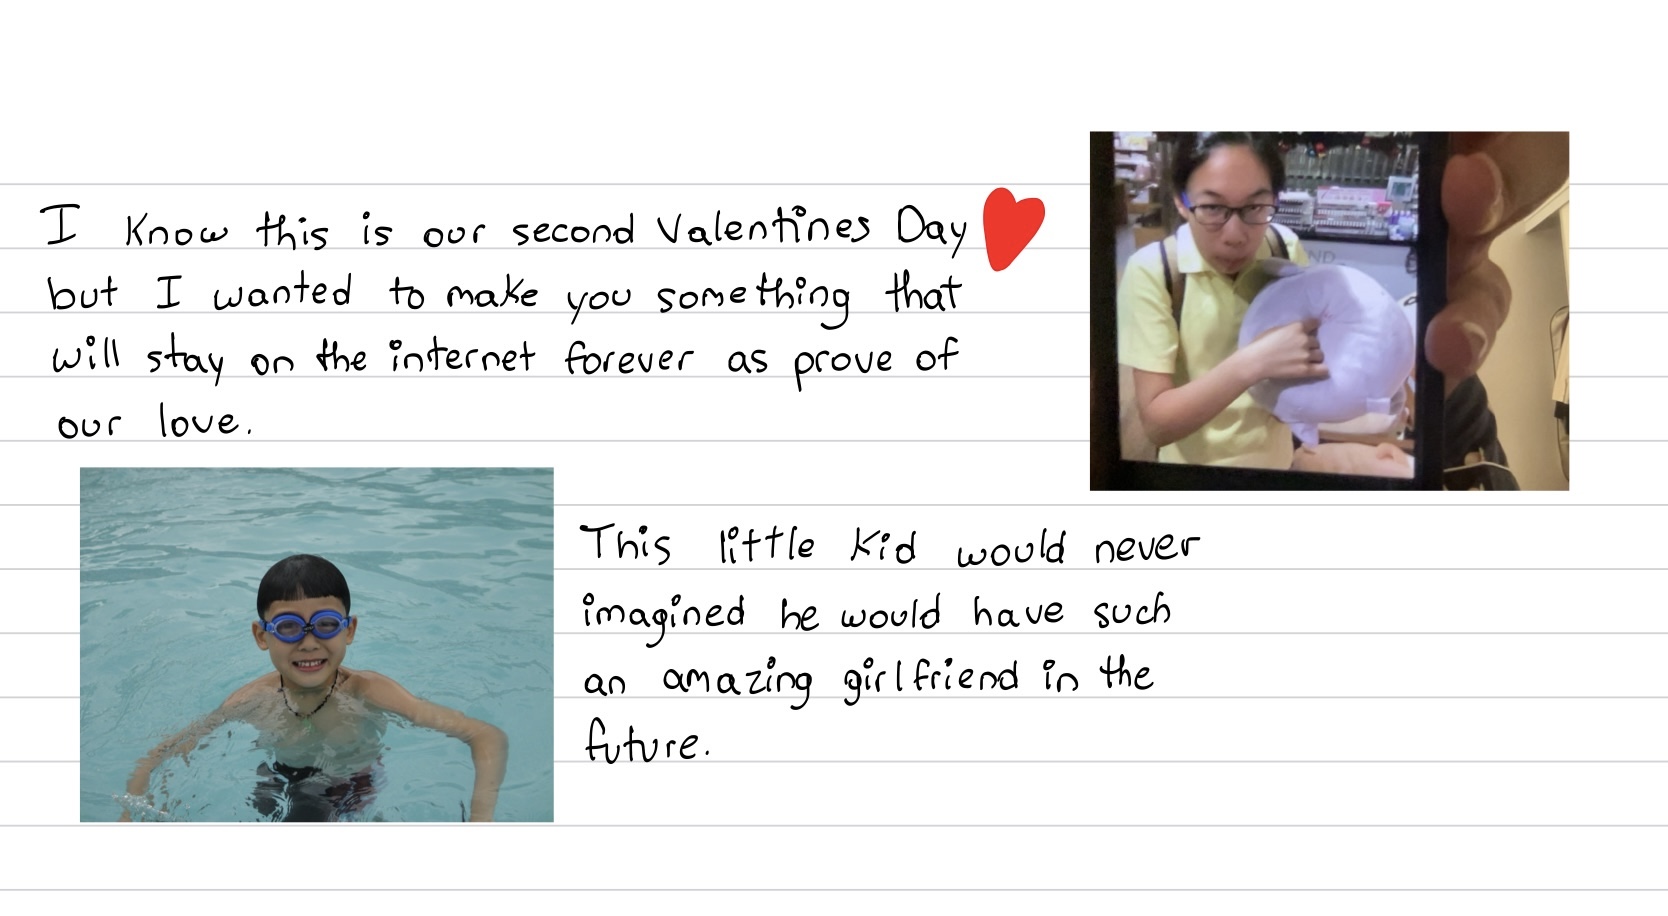 I know this is our second Valentines Day
but I wanted to make you something that
will stay on the internet forever as prove of
our love.
This little kid would never
imagined he would have such
an amazing girlfriend in the
future.